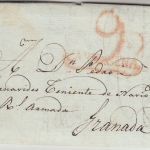 A Dn Pedro
Benavides Teniente de Navio
Rl Armada
Granada